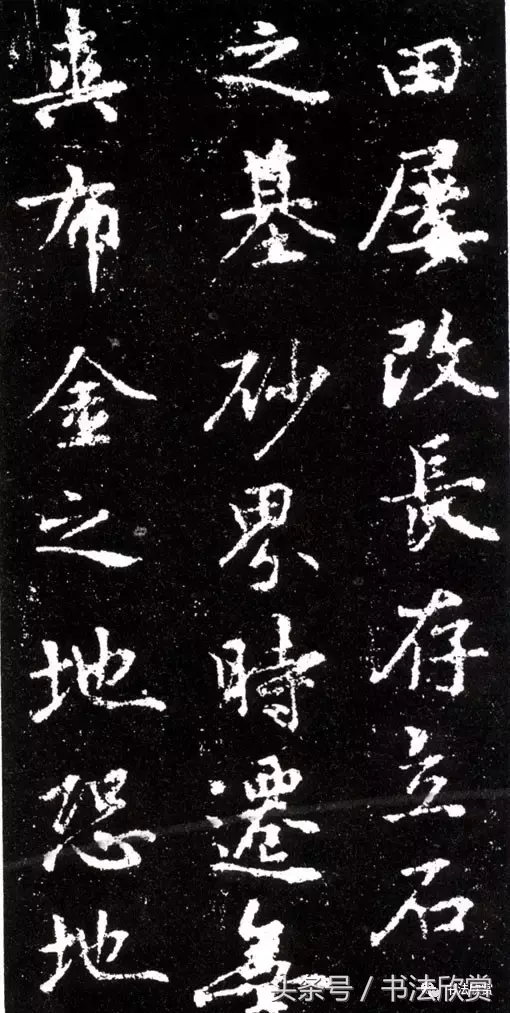 田屢改長存立石
之基砂界時遷無
爽布金之地恐地
头条号 / 书法欣赏